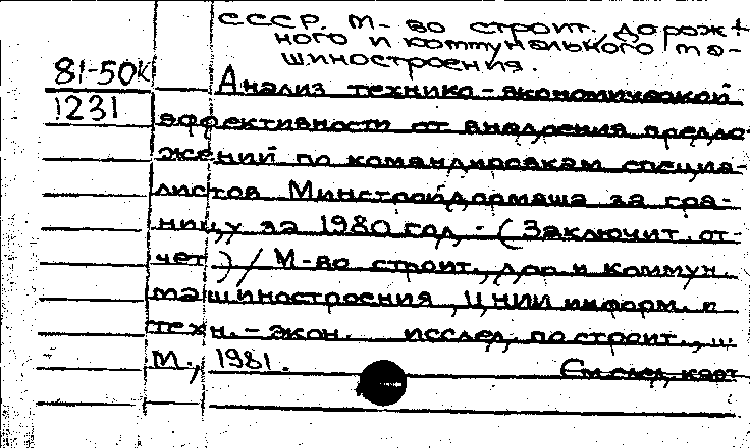 СССР. М-во строит. дорож
ного и коммунального ма-
шиностроения.
81-50к
1231
Анализ технико-экономической
эффективности от внедрения предло
жений по командировкам специа-
листов Минстройдормаша за гра-
ницу за 1980 год, - (Заключит. от-
чет) / М-во строит., дор и коммун.
машиностроения, ЦНИИ информ. и
техн.-экон. исслед. по строит.,
М., 1981.
См след карт